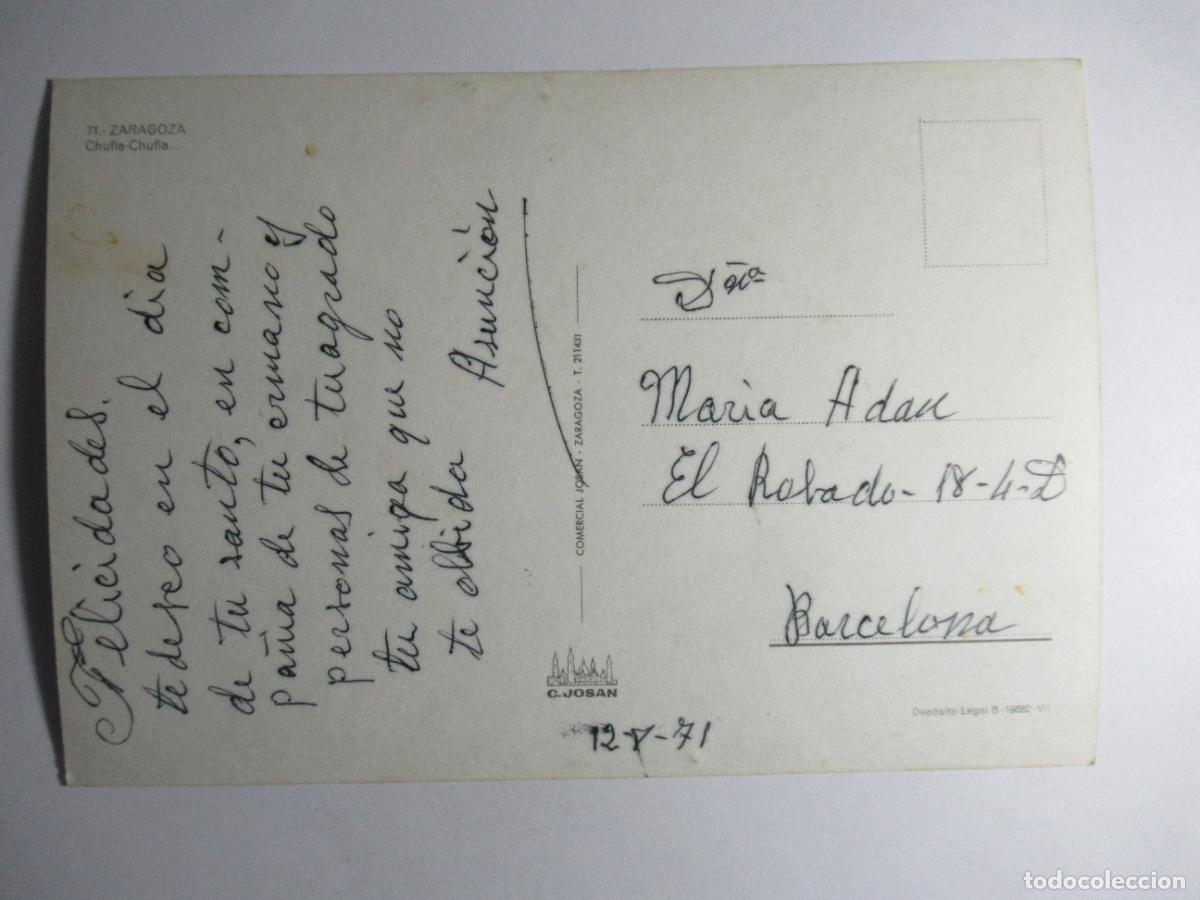 71.- ZARAGOZA
Chufla-Chufla...
Felicidades.
te deseo en el dia
de tu santo, en com-
pañia de tu ermano y
personas de tu agrado
tu amiga que no
te olbida Asunción
COMERCIAL JOSAN - ZARAGOZA - T. 211431
C. JOSAN
12-V-71
Dña
Maria Adan
El Robado - 18-4-D
Barcelona
Depósito Legal B-19682-VII
todocoleccion